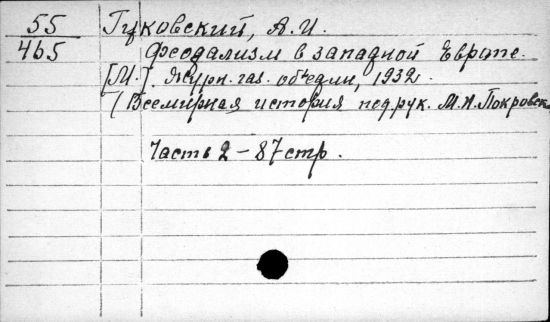 55 Гуковский, А.И.
465 Феодализм в западной Европе.
[М.]. Журн. газ. объедин, 1932.
(Всемирная история под рук. М.Н.Покровск
Часть 2 – 87 стр.